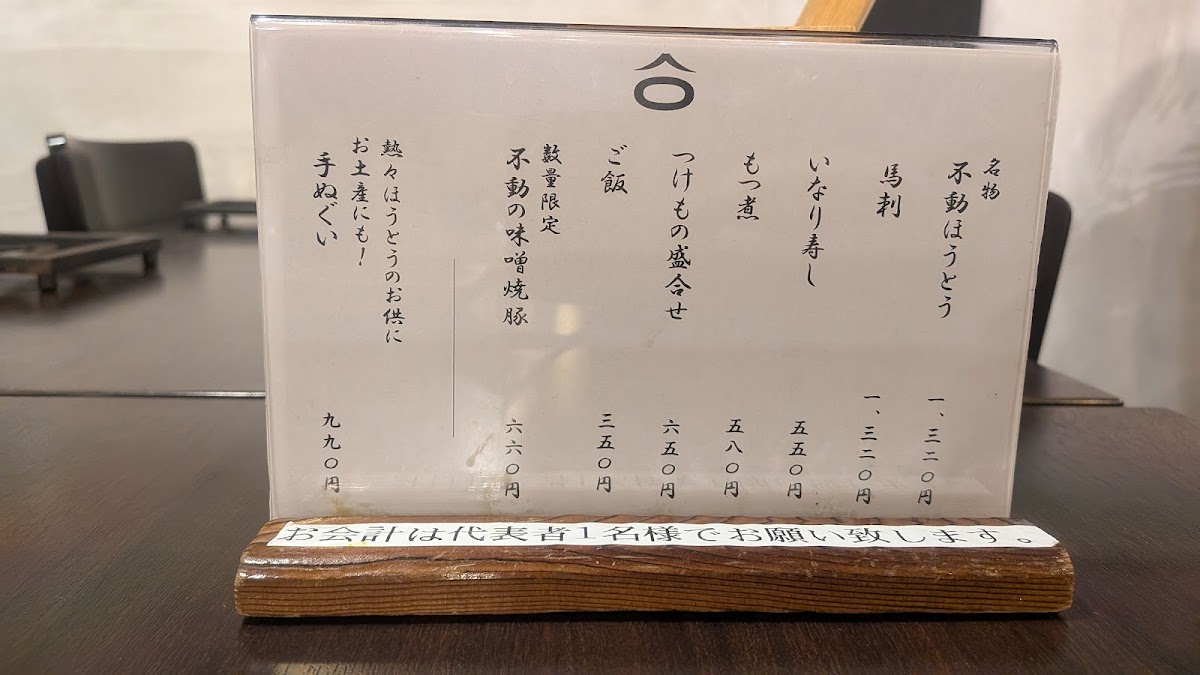 名物
不動ほうとう
一、三二〇円
馬刺
一、三二〇円
いなり寿し
五五〇円
もつ煮
五八〇円
つけもの盛合せ
六五〇円
ご飯
三五〇円
数量限定
不動の味噌焼豚
六六〇円
熱々ほうとうのお供に
お土産にも!
手ぬぐい
九九〇円
お会計は代表者1名様でお願い致します。